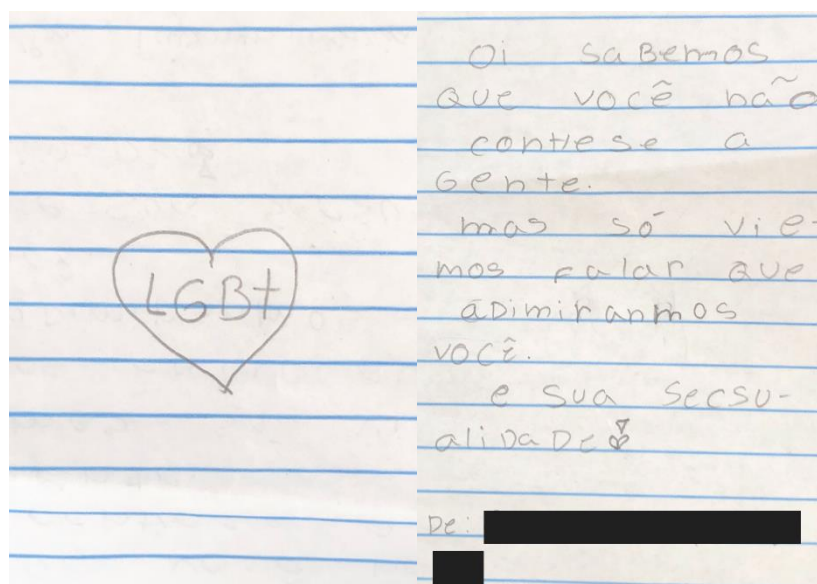 LGBT
Oi SaBemos
QUe você não
conhese a
Gente.
mas só vie-
mos falar QUe
aDimiranmos
você.
e sua secsu-
aliDaDe!
De: